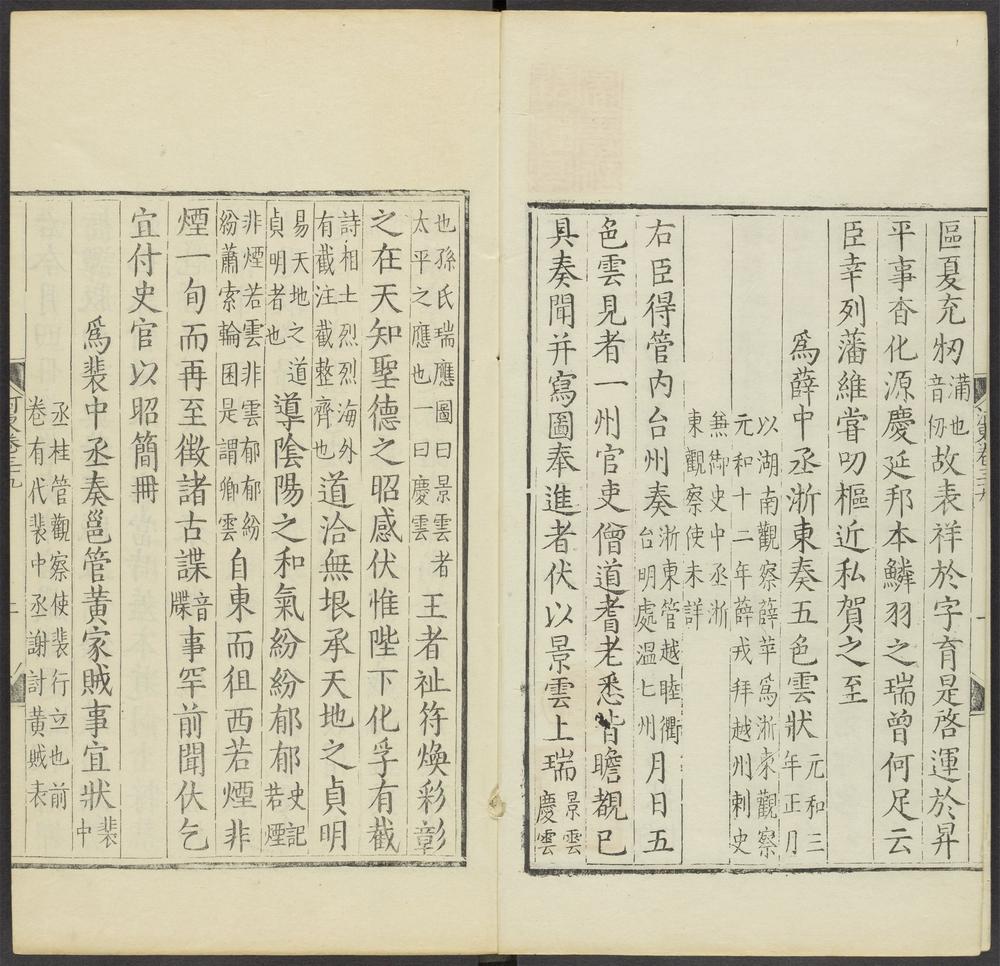 區夏充牣滿也音仞故表祥於字育是啓運於昇
平事杳化源慶延邦本鱗羽之瑞曾何足云
臣幸列藩維甞叨樞近私賀之至
爲薛中丞浙東奏五色雲狀元和三年正月
以湖南觀察薛苹爲浙東觀察
元和十二年薛戎拜越州刺史
兼御史中丞浙
東觀察使未詳
右臣得管内台州奏浙東管越睦衢台明處溫七州月日五
色雲見者一州官吏僧道耆老悉皆瞻覩已
具奏聞并寫圖奉進者伏以景雲上瑞景雲慶雲
也孫氏瑞應圖曰景雲者太平之應也一曰慶雲王者祉符煥彩彰
之在天知聖德之昭感伏惟陛下化孚有截
詩相土烈烈海外有截注截整齊也道洽無垠承天地之貞明
易天地之道貞明者也導陰陽之和氣紛紛郁郁史記若煙
非煙若雲非雲郁郁紛紛蕭索輪囷是謂卿雲自東而徂西若煙非
煙一旬而再至徵諸古諜音牒事罕前聞伏乞
宜付史官以昭簡冊
爲裴中丞奏邕管黄家賊事宜狀裴中
丞桂管觀察使裴行立也前
卷有代裴中丞謝討黄賊表